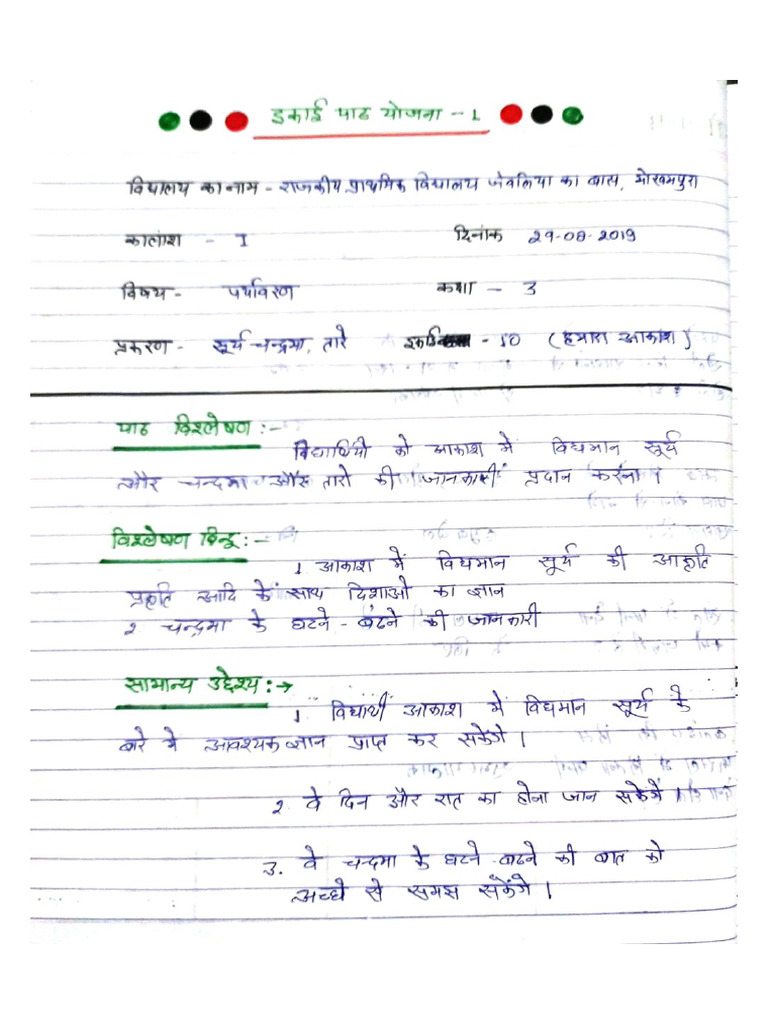 इकाई पाठ योजना - 1
विद्यालय का नाम - राजकीय प्राथमिक विद्यालय जेवलिया का बास, मोखमपुरा
कालांश - I दिनांक 29-08-2019
विषय - पर्यावरण कक्षा - 3
प्रकरण - सूर्य चन्द्रमा, तारे इकाई - 10 (हमारा आकाश)
पाठ विश्लेषण :-
विद्यार्थियो को आकाश में विद्यमान सूर्य
और चन्द्रमा और तारो की जानकारी प्रदान करना।
विश्लेषण बिन्दू :-
1 आकाश में विद्यमान सूर्य की आकृति
प्रकृति आदि के साथ दिशाओ का ज्ञान
2 चन्द्रमा के घटने - बढने की जानकारी
सामान्य उद्देश्य :→
1. विद्यार्थी आकाश में विद्यमान सूर्य के
बारे मे आवश्यक ज्ञान प्राप्त कर सकेगे।
2. वे दिन और रात का होना जान सकेगे।
3. वे चन्दमा के घटने - बढने की बात को
अच्छे से समझ सकेंगे।